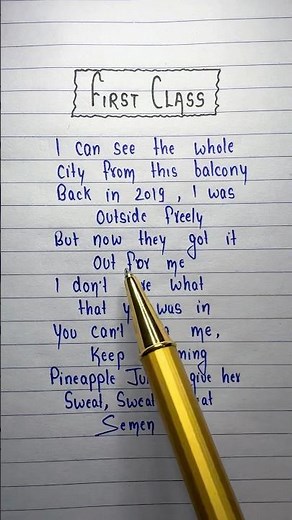 FIRST CLASS
I can see the whole
city from this balcony
Back in 2019, I was
outside freely
But now they got it
out for me
I don't what
that was in
You can't me,
Keep
Pineapple give her
Sweat, Sweat
Semen